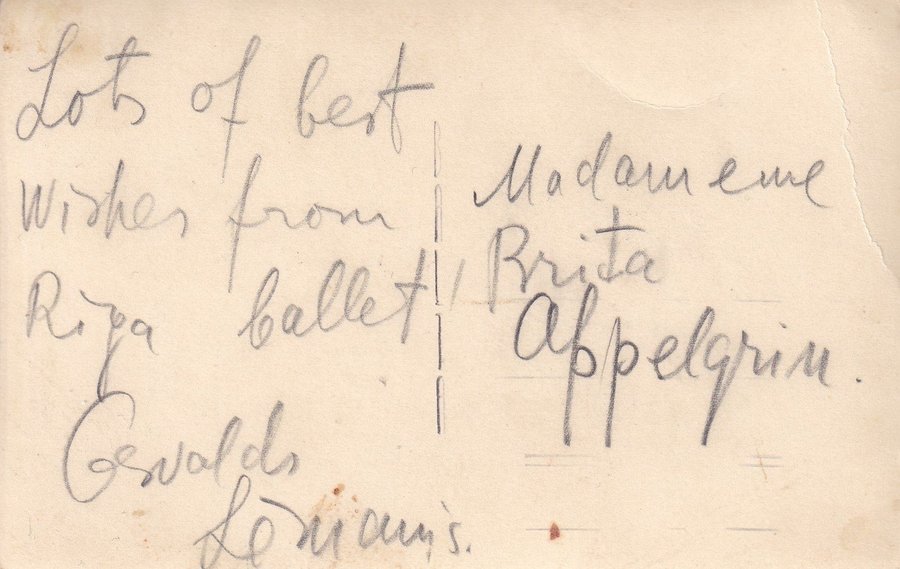 Lots of best
Wishes from
Riga ballet,
Osvalds
Lēmanis.
Madameme
Brita
Appelgrin.